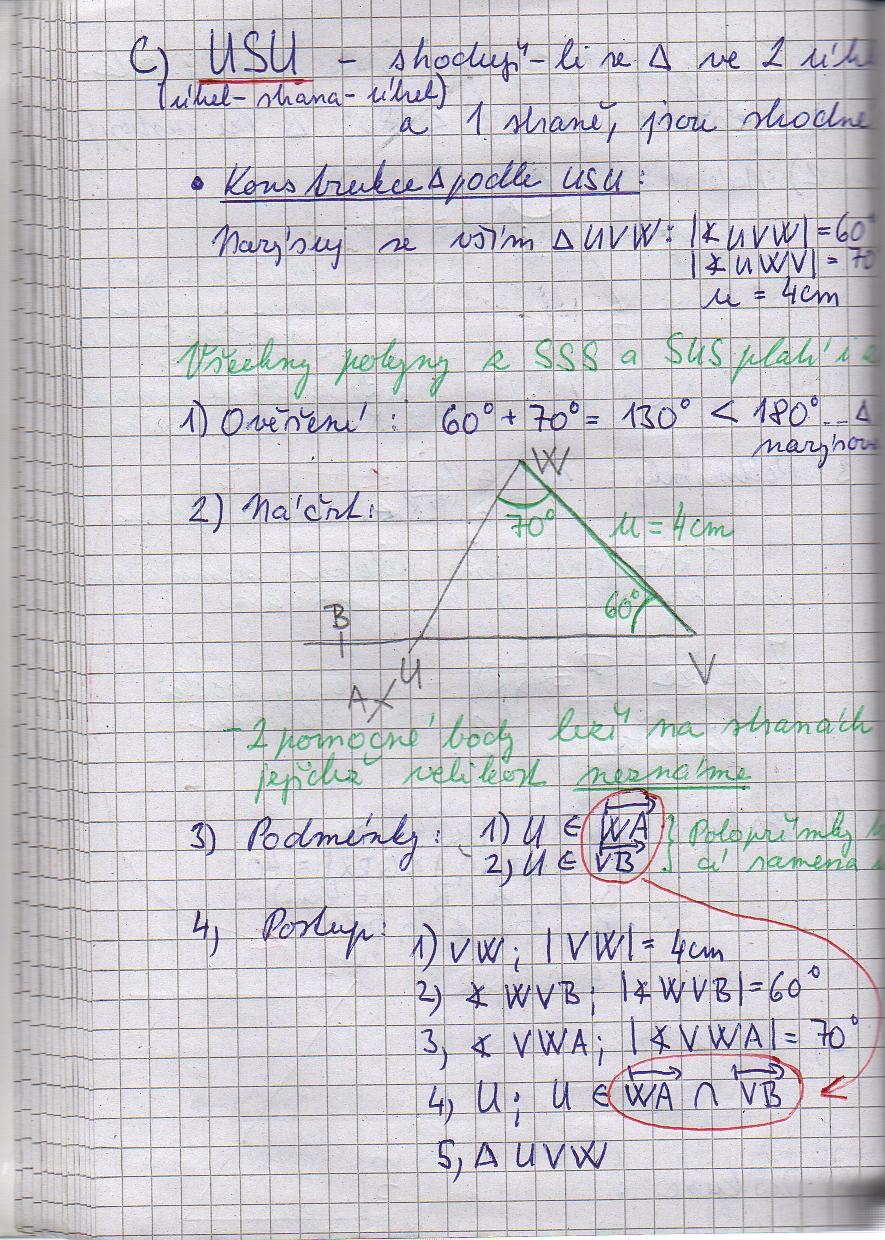 C) USU - shodují-li se Δ ve 2 úhl
(úhel-strana-úhel)
a 1 straně, jsou shodné
• Konstrukce Δ podle USU:
Narýsuj se vším Δ UVW: |∢UVW| = 60°
|∢UWV| = 70
u = 4cm
Všechny pokyny z SSS a SUS platí i z
1) Ověření: 60° + 70° = 130° < 180°... Δ
narýsov
2) Náčrt:
W
70°
u = 4cm
60°
B
U
V
A
- 2 pomocné body leží na stranách
jejichž velikost neznáme
3) Podmínky: 1) U ∈ WA } Polopřímky
2) U ∈ VB } a ramena
4) Postup:
1) VW; |VW| = 4cm
2) ∢ WVB; |∢WVB| = 60°
3) ∢ VWA; |∢VWA| = 70°
4) U; U ∈ WA ∩ VB
5) Δ UVW